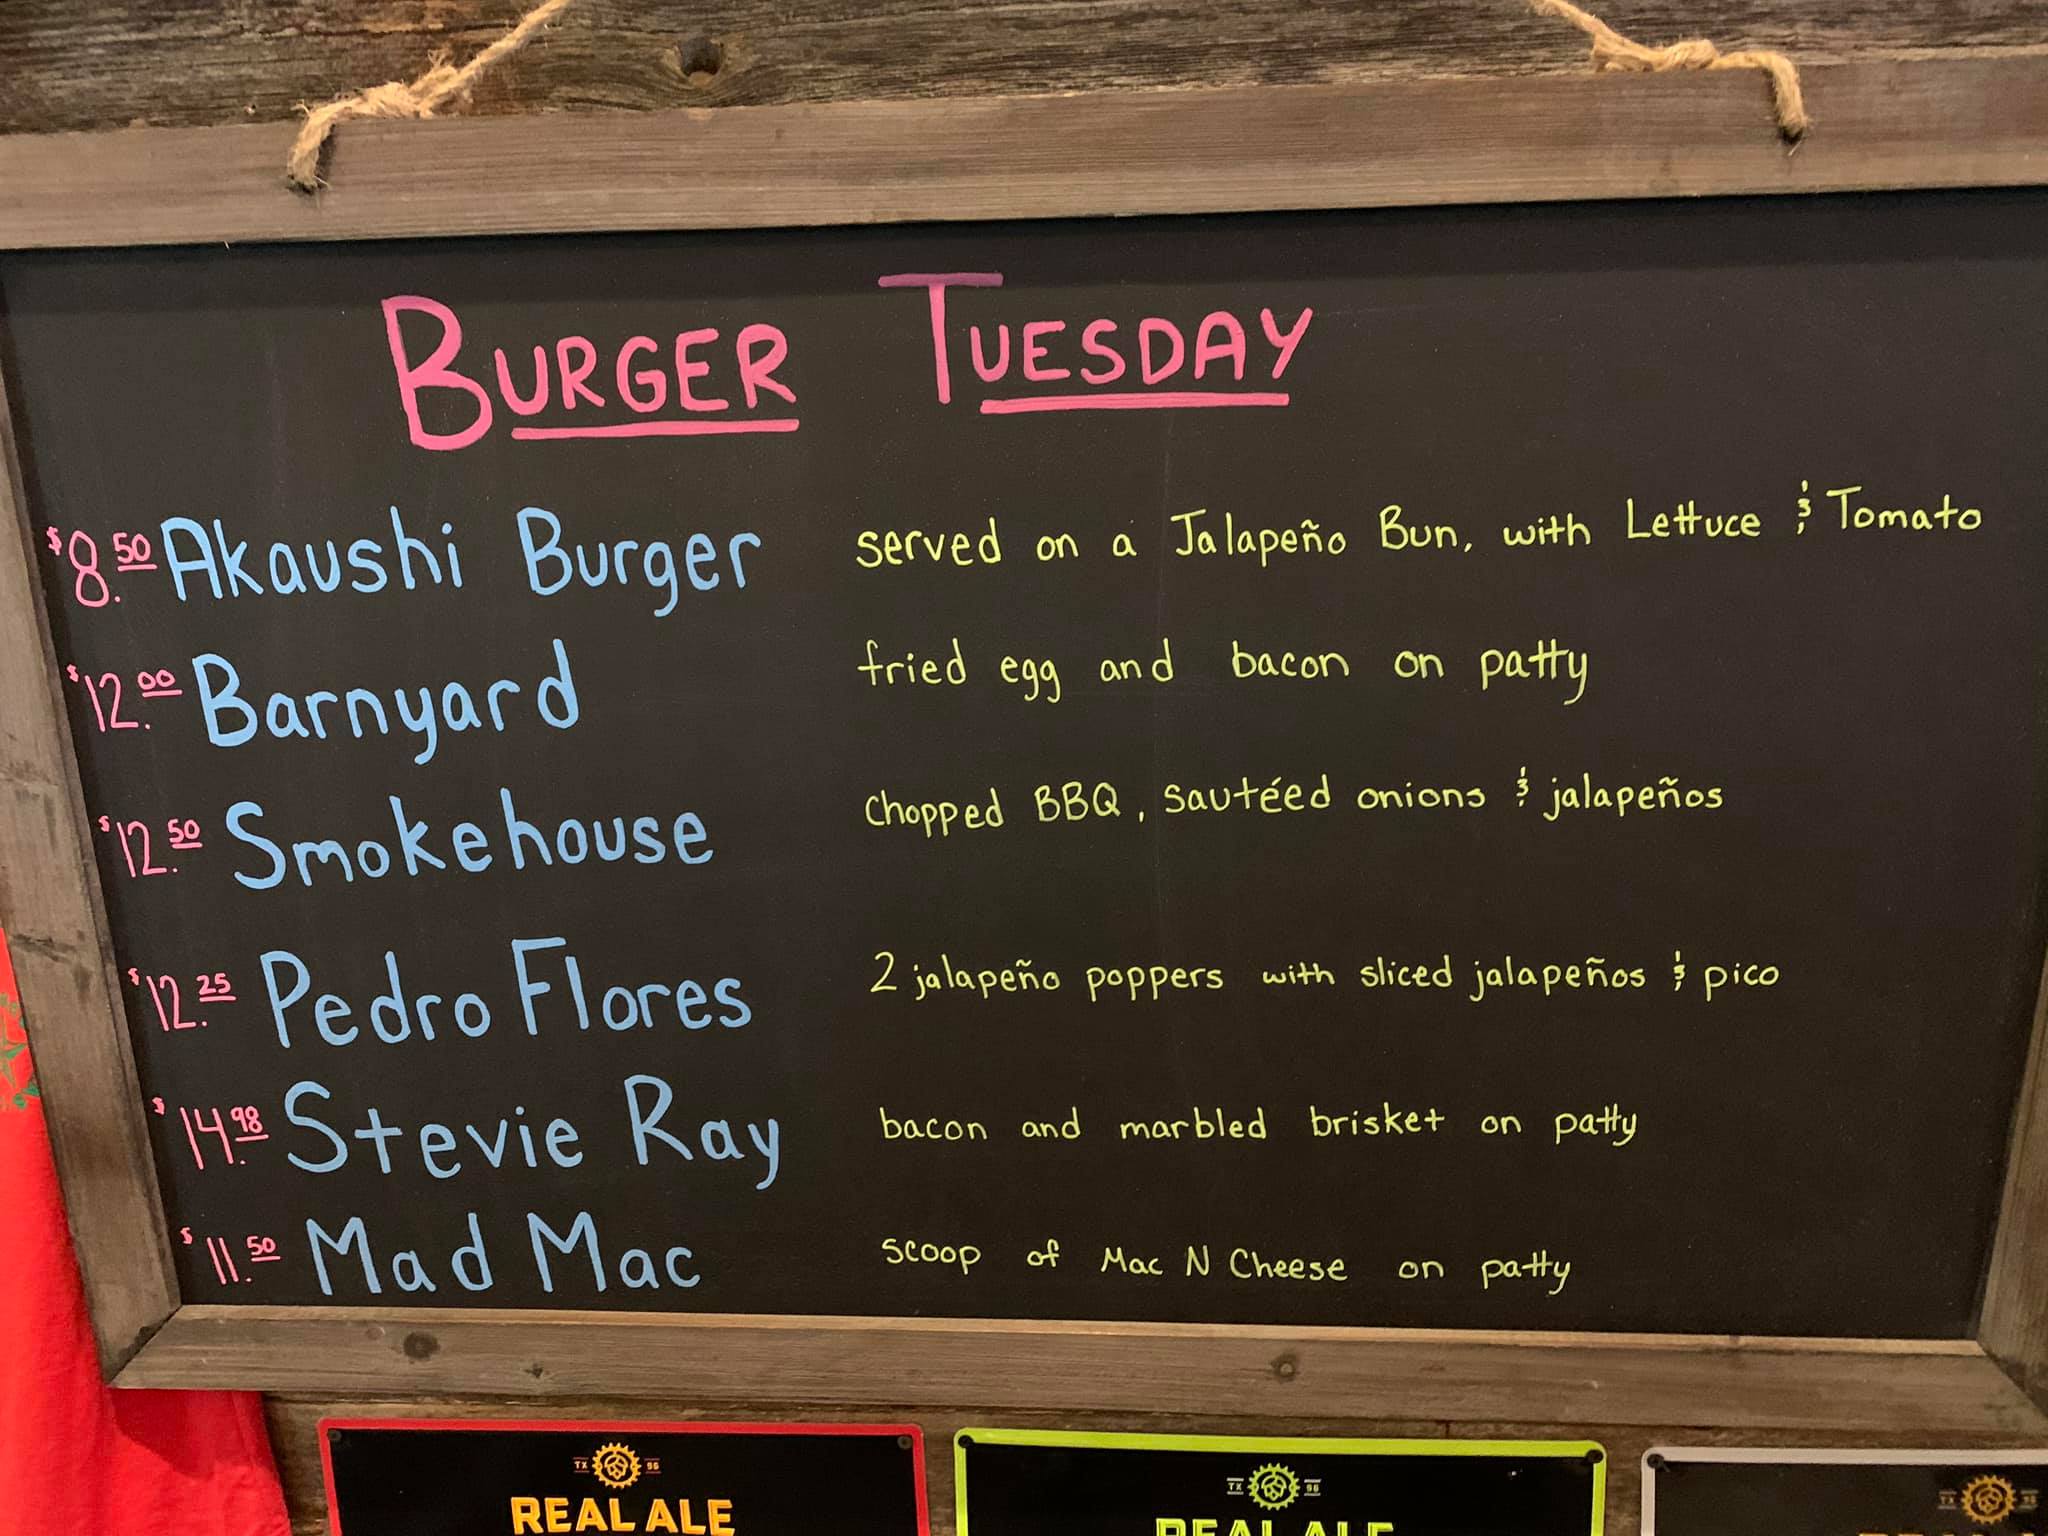 BURGER TUESDAY
$8.50 Akaushi Burger served on a Jalapeño Bun, with Lettuce & Tomato
$12.00 Barnyard fried egg and bacon on patty
$12.50 Smokehouse Chopped BBQ, sautéed onions & jalapeños
$12.25 Pedro Flores 2 jalapeño poppers with sliced jalapeños & pico
$14.98 Stevie Ray bacon and marbled brisket on patty
$11.50 Mad Mac scoop of Mac N Cheese on patty
TX 96 TX 96 TX 96
REAL ALE REAL ALE